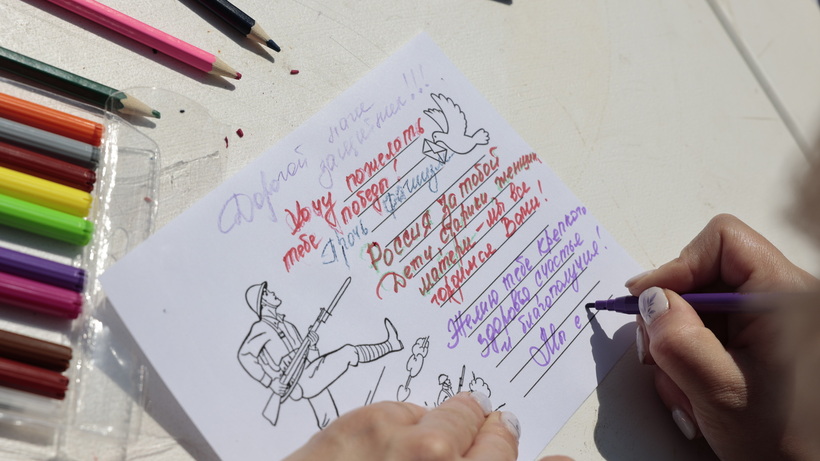 Дорогой наш
защитник!!!
Хочу пожелать
тебе победы!
Прочь фашизм
Россия за тобой
Дети старики женщины
матери - мы все
гордимся Вами!
Желаю тебе крепкого
здоровья счастья
и благополучия!
Мы с